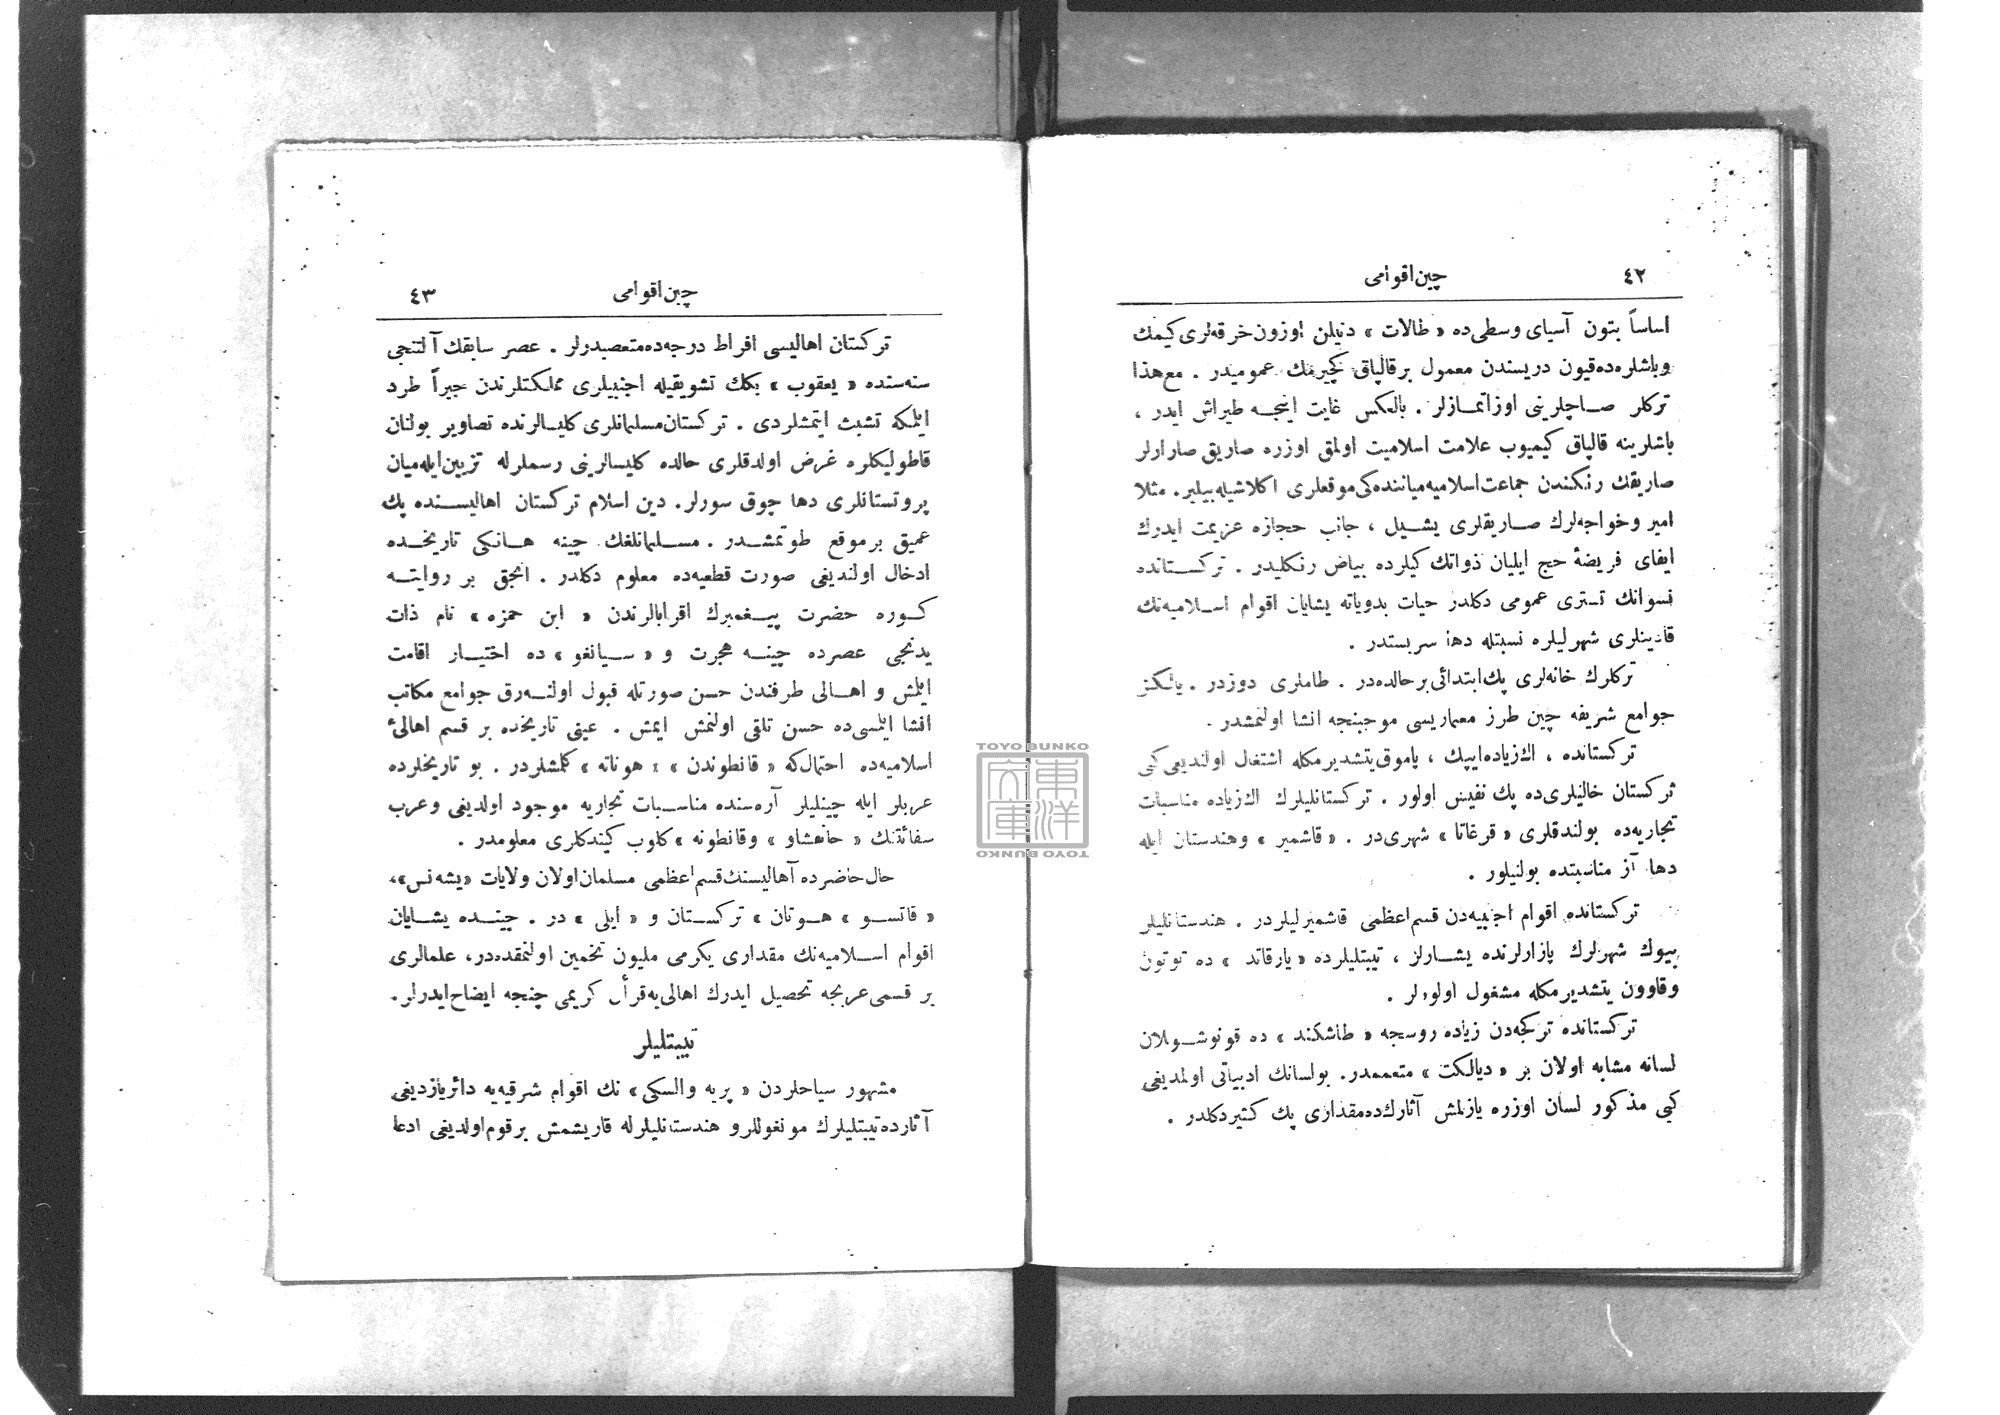 ٤٢
چين اقوامى
اساساً بتون آسياى وسطى‌ده « طالات » دنيلن اوزون خرقه‌لرى كيمك
و باشلره‌ده قيون دريسندن معمول بر قالپاق كچيرمك عموميدر . مع هذا
تركلر صاچلرينى اوزاتمازلر . بالعكس غايت اينجه طيراش ايدر ،
باشلرينه قالپاق كيميوب علامت اسلاميت اولمق اوزره صاريق صارارلر
صاريقك رنكندن جماعت اسلاميه ميانندەكى موقعلرى اكلاشيله‌بيلير . مثلا
امير و خواجه‌لرك صاريقلرى يشيل ، جانب حجازه عزيمت ايدرك
ايفاى فريضهٔ حج ايليان ذواتك كيلرده بياض رنكليدر . تركستانده
نسوانك تسترى عمومى دكلدر حيات بدويانه يشايان اقوام اسلاميه‌نك
قادينلرى شهرليلره نسبتله دها سربستدر .
تركلرك خانه‌لرى پك ابتدائى بر حالده‌در . طاملرى دوزدر . يالكز
جوامع شريفه چين طرز معماريسى موجبنجه انشا اولنمشدر .
تركستانده ، اك زياده ايپك ، پاموق يتشديرمكله اشتغال اولنديغى كبى
تركستان خاليلرى‌ده پك نفيس اولور . تركستانليلرك اك زياده مناسبات
تجاريه‌ده بولندقلرى « قرغاتا » شهرى‌در . « قاشمير » و هندستان ايله
دها آز مناسبتده بولنيلور .
تركستانده اقوام اجنبيه‌دن قسم اعظمى قاشميرليلردر . هندستانليلر
بيوك شهرلرك بازارلرنده يشارلر ، تيبتليلرده « يارقاند » ده توتون
و قاوون يتشديرمكله مشغول اولورلر .
تركستانده تركجه‌دن زياده روسجه « طاشكند » ده قونوشولان
لسانه مشابه اولان بر « ديالكت » متعممدر . بولسانك ادبياتى اولمديغى
كبى مذكور لسان اوزره يازلمش آثارك‌ده مقدارى پك كثير دكلدر .
٤٣
چين اقوامى
تركستان اهاليسى افراط درجه‌ده متعصبدرلر . عصر سابقك آلتنجى
سنه‌سنده « يعقوب » بكك تشويقيله اجنبيلرى مملكتلرندن جبراً طرد
ايلمكه تشبث ايتمشلردى . تركستان مسلمانلرى كليسالرنده تصاوير بولنان
قاطوليكلره غرض اولدقلرى حالده كليسالرينى رسملرله تزيين ايله‌ميان
پروتستانلرى دها چوق سورلر . دين اسلام تركستان اهاليسنده پك
عميق بر موقع طوتمشدر . مسلمانلغك چينه هانكى تاريخده
ادخال اولنديغى صورت قطعيه‌ده معلوم دكلدر . انجق بر روايته
كوره حضرت پيغمبرك اقربالرندن « ابن حمزه » نام ذات
يدنجى عصرده چينه هجرت و « سيانغو » ده اختيار اقامت
ايلمش و اهالى طرفندن حسن صورتله قبول اولنه‌رق جوامع مكاتب
انشا ايلمسى‌ده حسن تلقى اولنمش ايمش . عينى تاريخده بر قسم اهالئ
اسلاميه‌ده احتمال كه « قانطوندن » « هونانه » كلمشلردر . بو تاريخلرده
عربلر ايله چينليلر آره‌سنده مناسبات تجاريه موجود اولديغى و عرب
سفائننك « حانغشاو » و قانطونه » كلوب كيتدكلرى معلومدر .
حال حاضرده آهاليسنك قسم اعظمى مسلمان اولان ولايات « يشه‌نس »،
« قانسو » هوتان » تركستان و « ايلى » در . چينده يشايان
اقوام اسلاميه‌نك مقدارى يكرمى مليون تخمين اولنمقده‌در ، علمالرى
بر قسمى عربجه تحصيل ايدرك اهالى‌يه قرأن كريمى چنجه ايضاح ايدرلر .
تيبتليلر
مشهور سياحلردن « پريه والسكى » نك اقوام شرقيه‌يه دائر يازديغى
آثارده تيبتليلرك مونغوللر و هندستانليلرله قاريشمش بر قوم اولديغى ادعا
TOYO BUNKO
東洋文庫
TOYO BUNKO